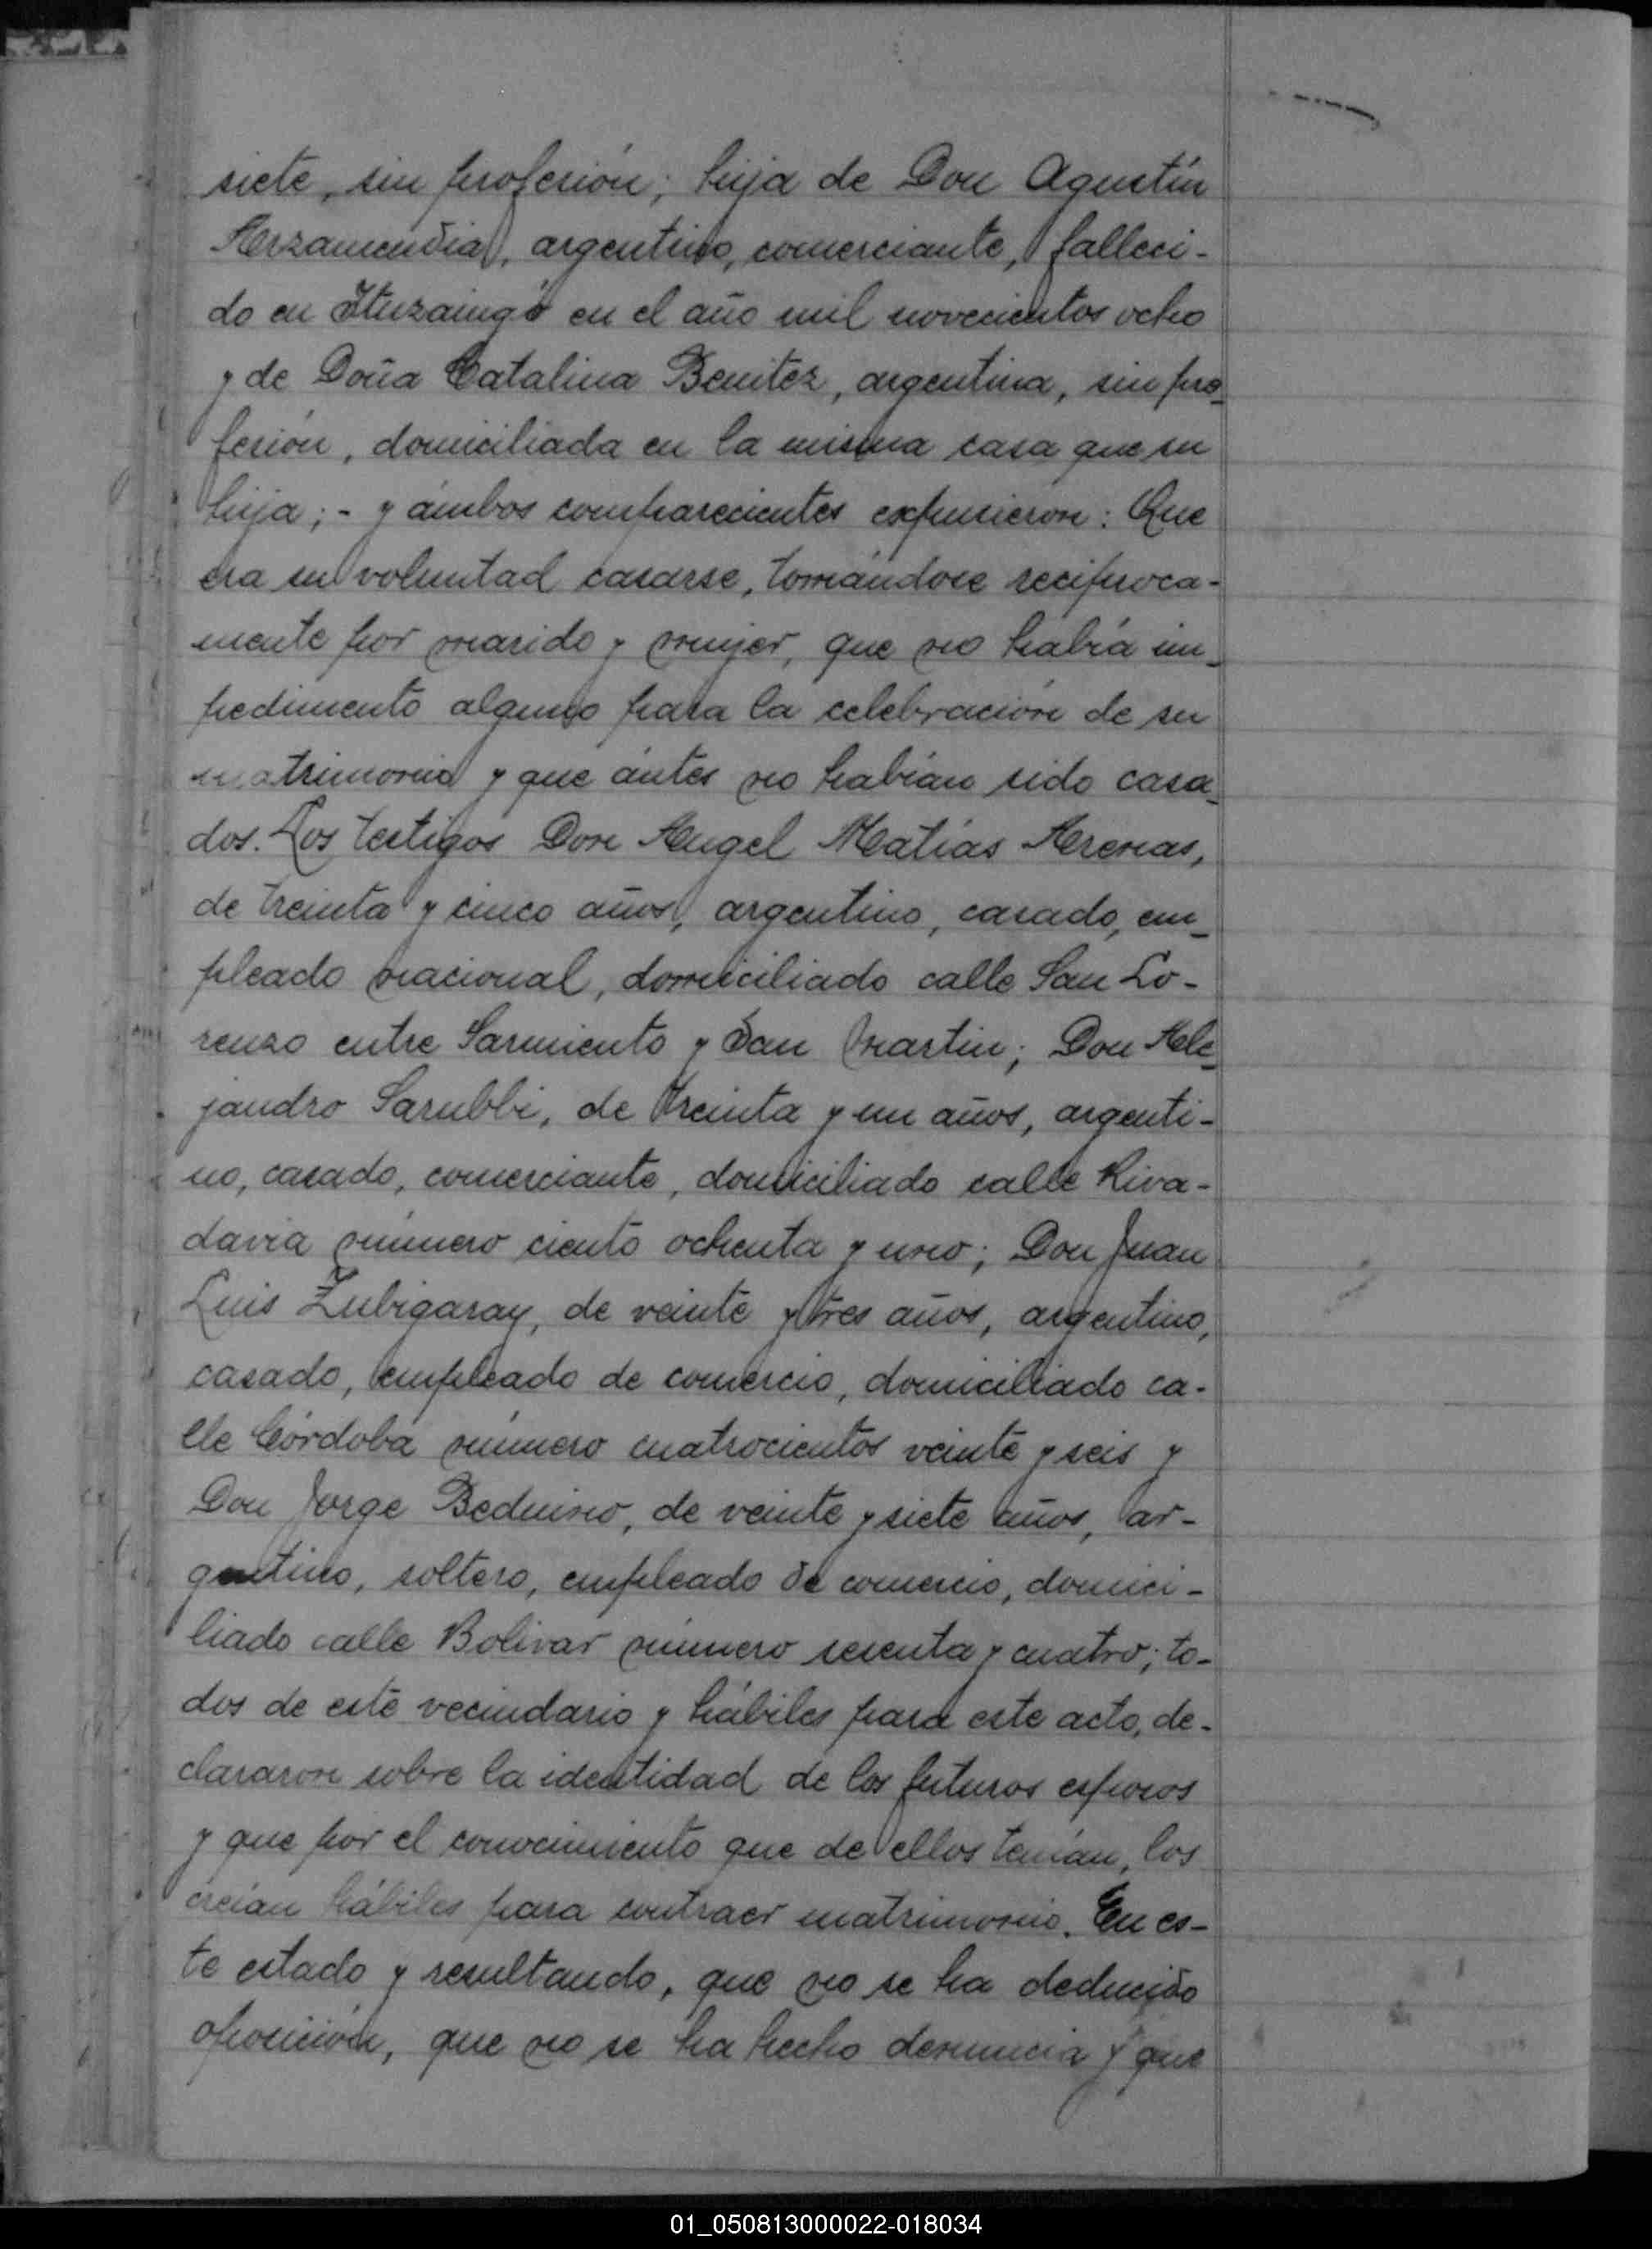 siete, sin profesión; hija de Don Agustín
Arzamendia, argentino, comerciante, falleci-
do en Ituzaingó en el año mil novecientos ocho
y de Doña Catalina Benitez, argentina, sin pro-
fesión, domiciliada en la misma casa que su
hija; - y ámbos comparecientes expusieron: Que
era su voluntad casarse, tomándose recíproca-
mente por marido y mujer, que no había im-
pedimento alguno para la celebración de su
matrimonio y que ántes no habían sido casa-
dos. Los testigos Don Angel Matías Arenas,
de treinta y cinco años, argentino, casado, em-
pleado nacional, domiciliado calle San Lo-
renzo entre Sarmiento y San Martin; Don Ale-
jandro Sarubbi, de treinta y un años, argenti-
no, casado, comerciante, domiciliado calle Riva-
davia número ciento ochenta y uno; Don Juan
Luis Zubigaray, de veinte y tres años, argentino,
casado, empleado de comercio, domiciliado ca-
lle Córdoba número cuatrocientos veinte y seis y
Don Jorge Beduino, de veinte y siete años, ar-
gentino, soltero, empleado de comercio, domici-
liado calle Bolivar número sesenta y cuatro; to-
dos de este vecindario y hábiles para este acto, de-
clararon sobre la identidad de los futuros esposos
y que por el conocimiento que de ellos tenían, los
creían hábiles para contraer matrimonio. En es-
te estado y resultando, que no se ha deducido
oposición, que no se ha hecho denuncia y que
01_050813000022-018034